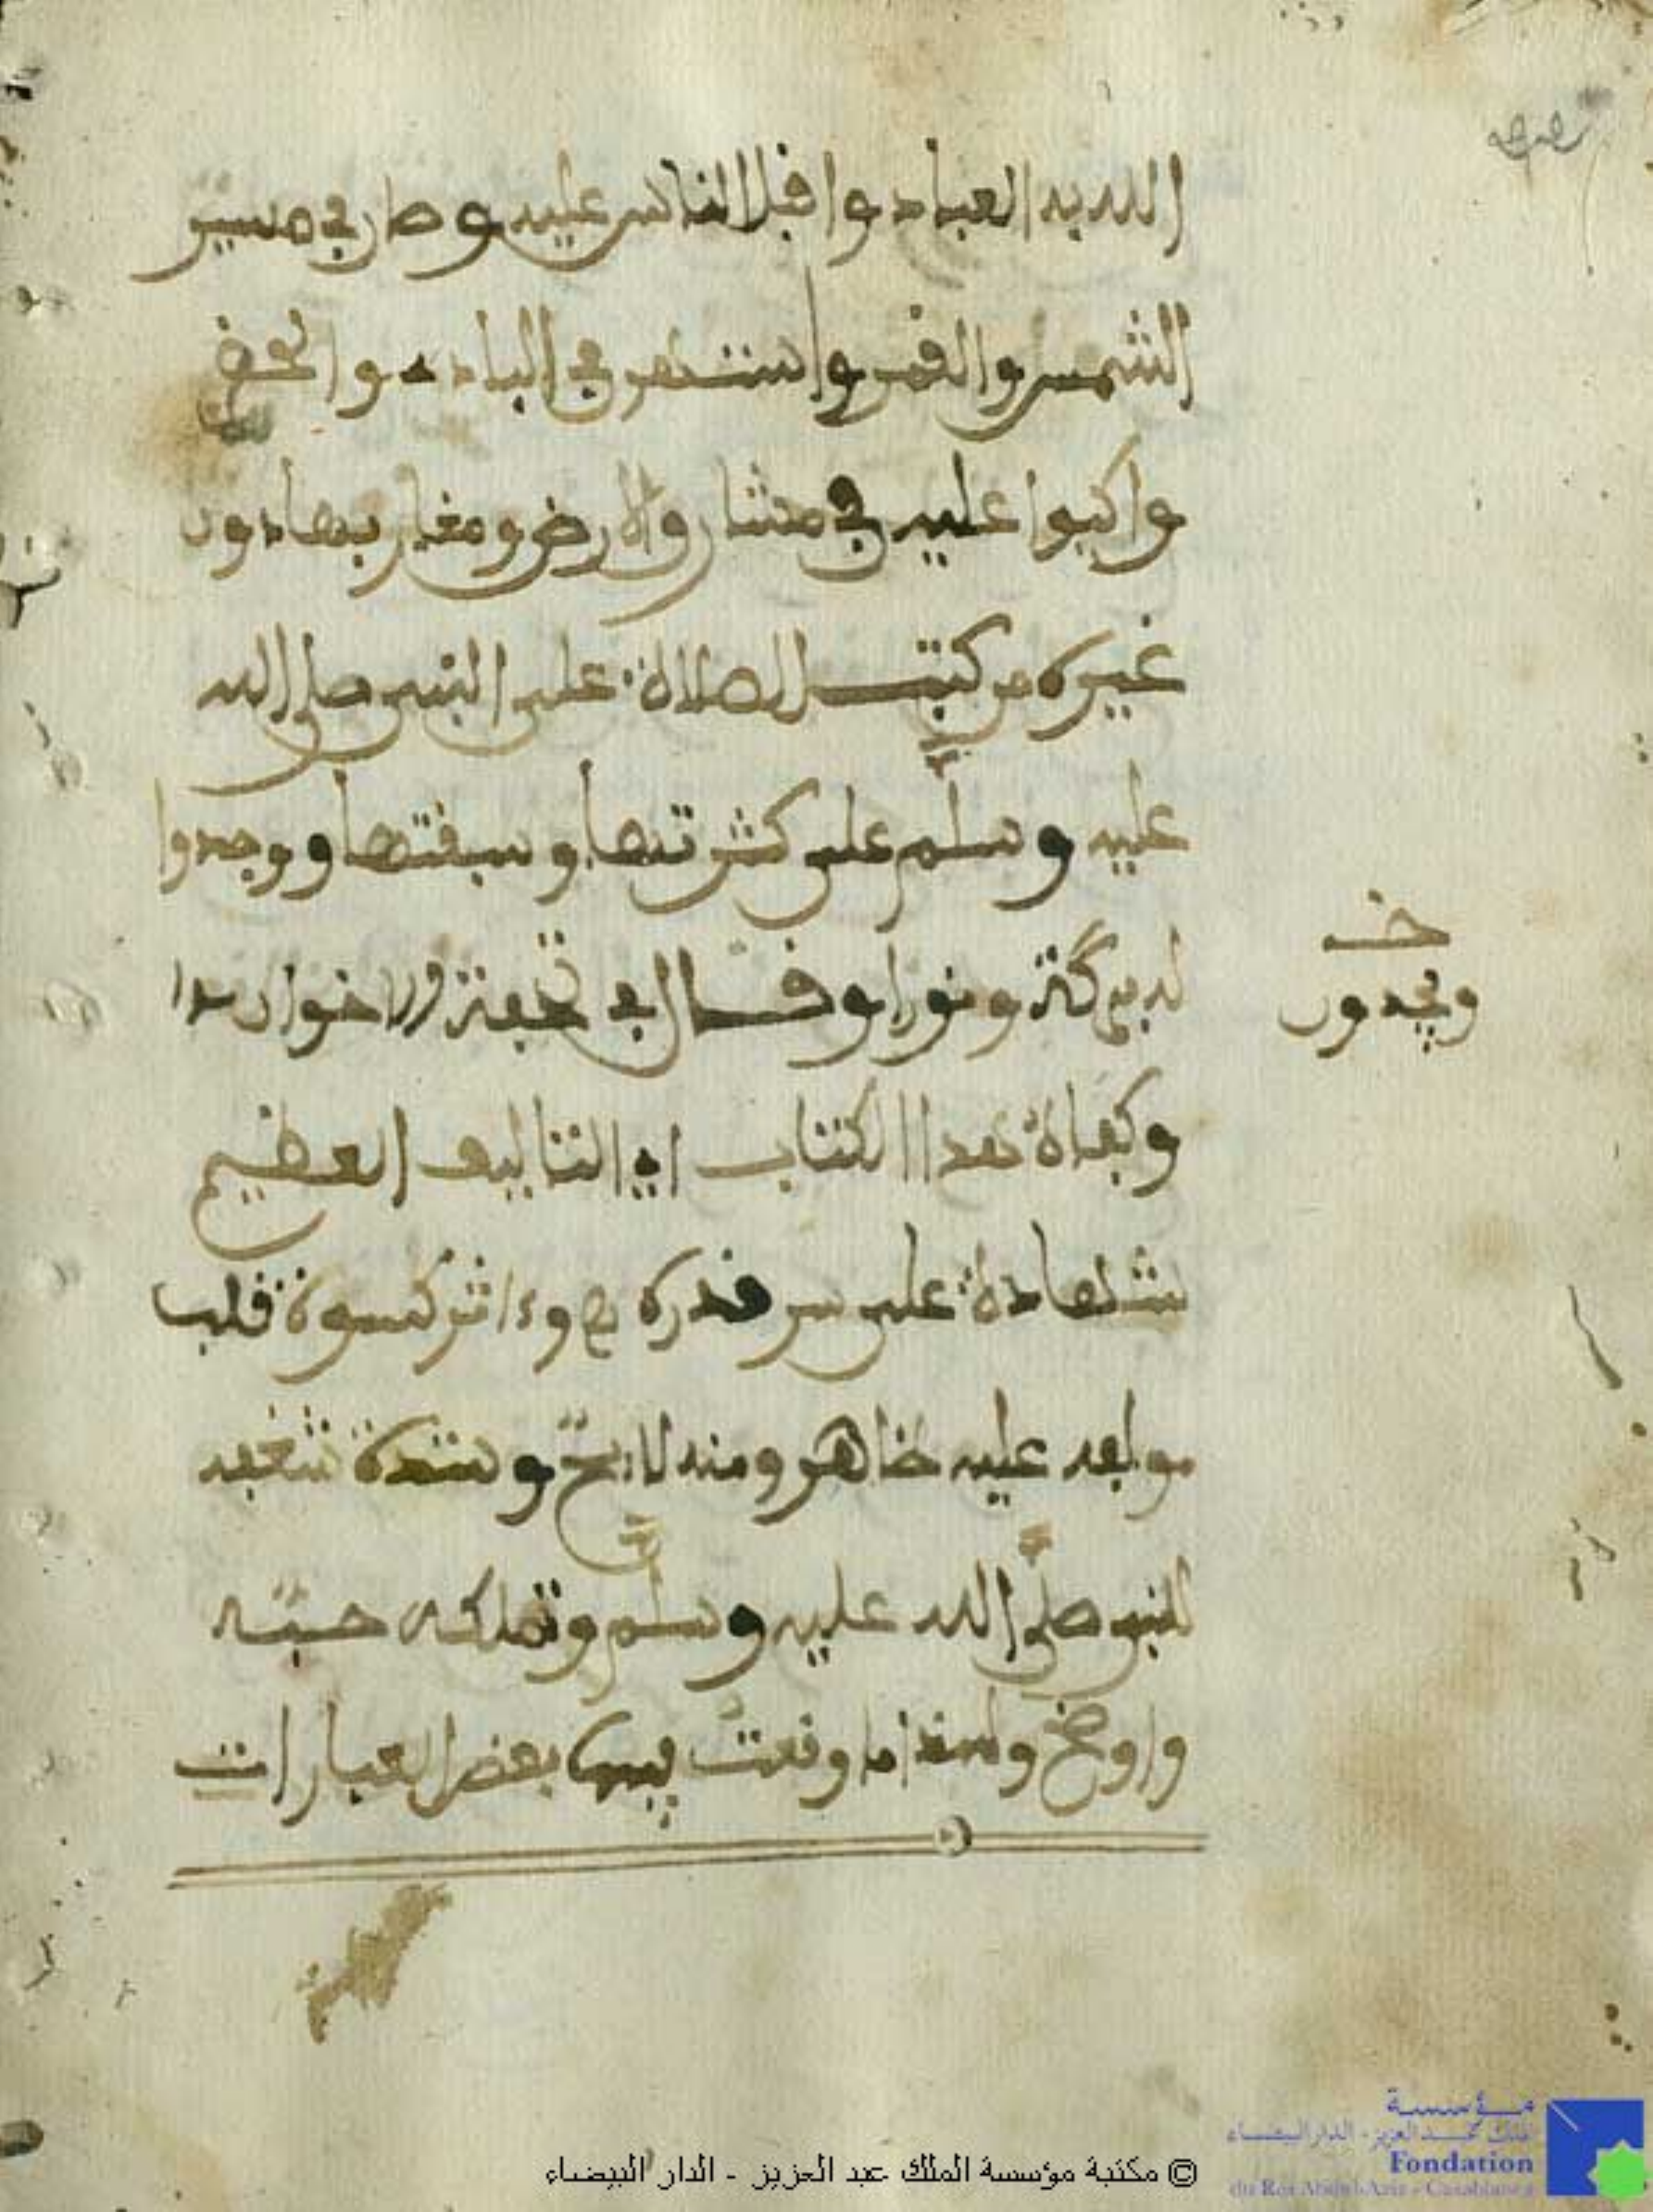 الله به العباد واقبل الناس عليه وطار في مسير
الشمس والقمر واشتهر في البادية والحضر
واكبوا عليه في مشارق الارض ومغاربها دون
غيره من كتب الصلاة على النبي صلى الله
عليه وسلم على كثرتها وسبقتها ووجدوا
له بركة ونورا وقال في تحفة الاخوان
خـ
ويجدون
وكفاه هذا الكتاب اي التاليف العظيم
شهادة على سر قدره وءاثر كسوة قلب
مولفه عليه ظاهر ومنه لايح وشدة شغفه
بالنبي صلى الله عليه وسلم وتملكه حبه
واوضح ولهذا ما وقعت فيه بعض العبارات
© مكتبة مؤسسة الملك عبد العزيز - الدار البيضاء
مؤسسة
الملك عبد العزيز - الدار البيضاء
Fondation
du Roi Abdul-Aziz - Casablanca